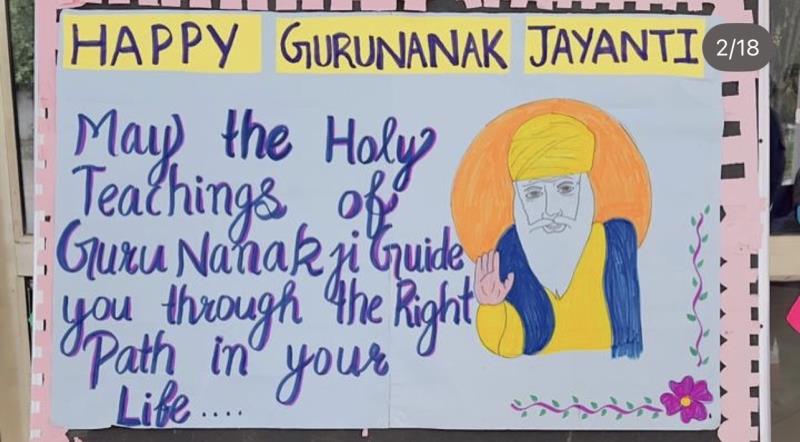 HAPPY GURUNANAK JAYANTI
2/18
May the Holy
Teachings of
Guru Nanak ji Guide
you through the Right
Path in your
Life....